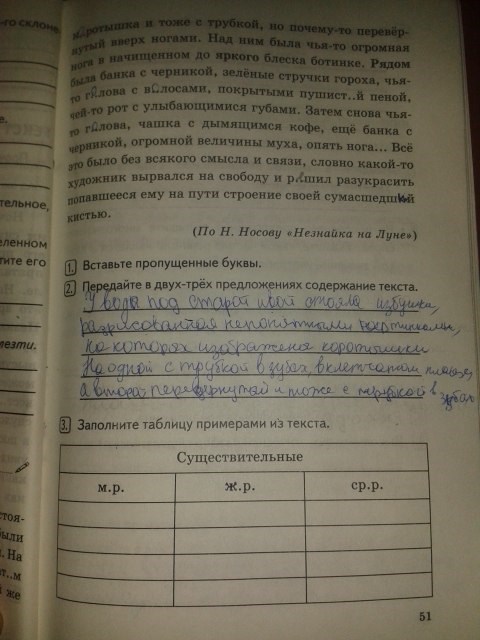 коротышка и тоже с трубкой, но почему-то перевёр-
нутый вверх ногами. Над ним была чья-то огромная
нога в начищенном до яркого блеска ботинке. Рядом
была банка с черникой, зелёные стручки гороха, чья-
то голова с волосами, покрытыми пушист..й пеной,
чей-то рот с улыбающимися губами. Затем снова чья-
то голова, чашка с дымящимся кофе, ещё банка с
черникой, огромной величины муха, опять нога... Всё
это было без всякого смысла и связи, словно какой-то
художник вырвался на свободу и решил разукрасить
попавшееся ему на пути строение своей сумасшедшей
кистью.
(По Н. Носову «Незнайка на Луне»)
1. Вставьте пропущенные буквы.
2. Передайте в двух-трёх предложениях содержание текста.
У вода под старой ивой стояла избушка,
разрисованная непонятными картинками,
на которых изображены коротышки
На одной с трубкой в зубах, в клетчатом
А вторая перевёрнутый и тоже с трубкой в зубах
3. Заполните таблицу примерами из текста.
Существительные
м.р. ж.р. ср.р.
51
-го склоне
е.
тельное,
деленном
тите его
везти.
стоя-
были
. На
т..м
же